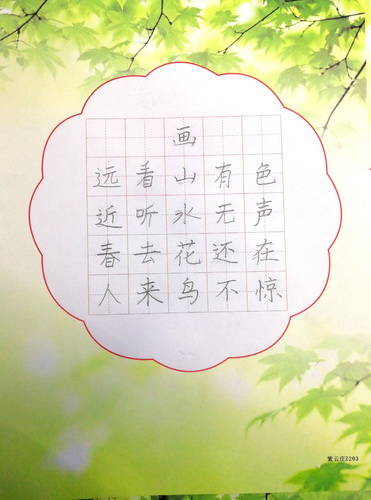 画
远看山有色
近听水无声
春去花还在
人来鸟不惊
紫云庄Z203